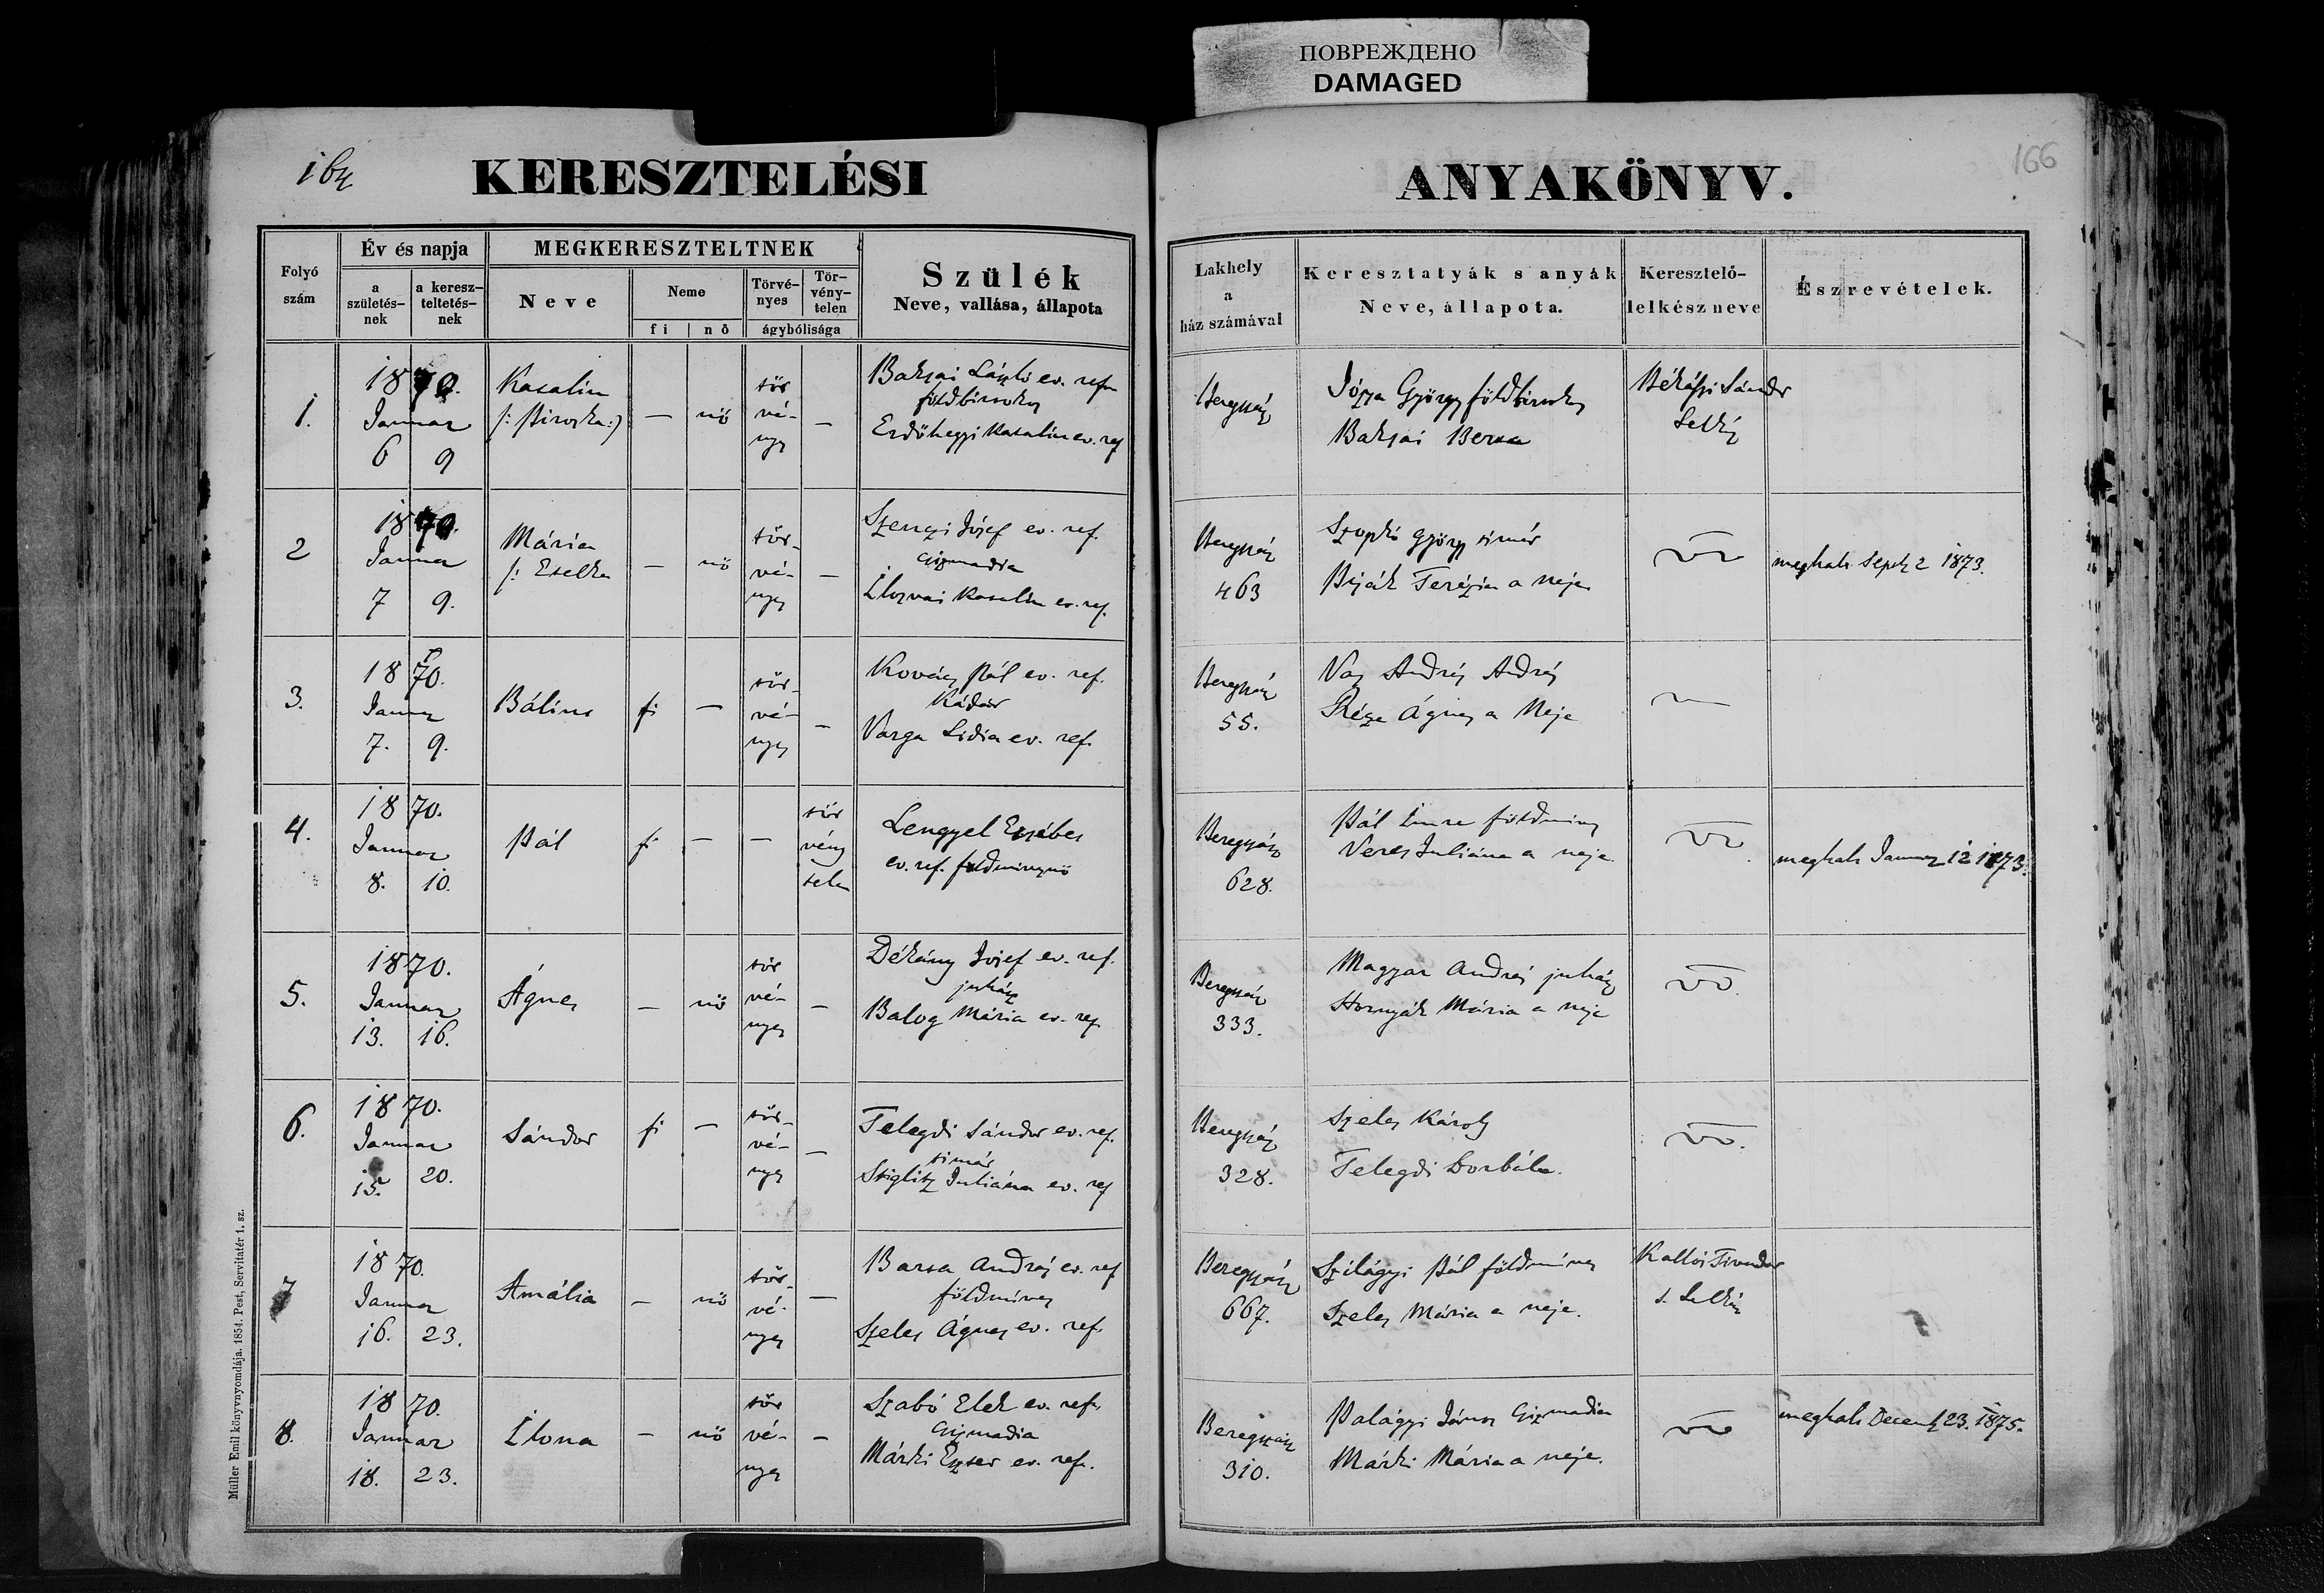 ПОВРЕЖДЕНО
DAMAGED
164
KERESZTELÉSI
ANYAKÖNYV.
166
Folyó szám
Év és napja
a születés-nek
a keresz-teltetés-nek
MEGKERESZTELTNEK
Neve
Neme
fi
nő
Törvé-nyes
Tör-vény-telen
ágybólisága
Szülék
Neve, vallása, állapota
Lakhely
a
ház számával
Keresztatyák s anyák
Neve, állapota.
Keresztelő-
lelkész neve
Észrevételek.
1.
1870.
Januar
6 9
Katalin
/: Piroska :/
— nő
tör
vé-
nyes
—
Baksai László ev. ref.
földbirtokos
Erdőhegyi Katalin ev. ref
Beregszász
Józsa György földbirtokos
Baksai Berta
Békássi Sándor
Lelkész
2
1870.
Januar
7 9.
Mária
/: Etelka
— nő
tör-
vé-
nyes
—
József ev. ref.
Csizmadia
Ilosvai Katalin ev. ref.
Beregszász
463
Szopkó György timár
Terézia a neje
meghalt Sept 2 1873.
3.
1870.
Januar
7. 9.
Bálint
fi —
tör-
vé-
nyes
—
Kovács Pál ev. ref.
Kádár
Varga Lidia ev. ref.
Beregszász
55.
Vas András András
Ágnes a Neje
4.
1870.
Januar
8. 10.
Pál
fi — —
tör
vény
telen
Lengyel Erzsébet
ev. ref. földmivesnő
Beregszász
628.
Pál Imre földmives
Veres Juliána a neje.
meghalt Januar 12 1873.
5.
1870.
Januar
13. 16.
Ágnes
— nő
tör
vé-
nyes
—
Dékány József ev. ref.
juhász
Balog Mária ev. ref.
Beregszász
333.
Magyar András juhász
Hornyák Mária a neje
6.
1870.
Januar
15. 20.
Sándor
fi —
tör-
vé-
nyes
—
Telegdi Sándor ev. ref.
timár
Stiglitz Juliána ev. ref
Beregszász
328.
Szeles Károly
Telegdi Borbála.
7
1870.
Januar
16. 23.
Amália
— nő
tör-
vé-
nyes
—
Barta András ev. ref
földmives
Szeles Ágnes ev. ref.
Beregszász
667.
Szilágyi Pál földmives
Szeles Mária a neje.
Kallói Tivadar
s. Lelkész
8.
1870.
Januar
18. 23.
Ilona
— nő
tör
vé-
nyes
—
Szabó Elek ev. ref.
Csizmadia
Márki Eszter ev. ref.
Beregszász
310.
Palágyi János Csizmadia
Márki Mária a neje.
meghalt Decemb 23. 1875.
Müller Emil könyvnyomdája. 1854. Pest, Servitatér 1. sz.